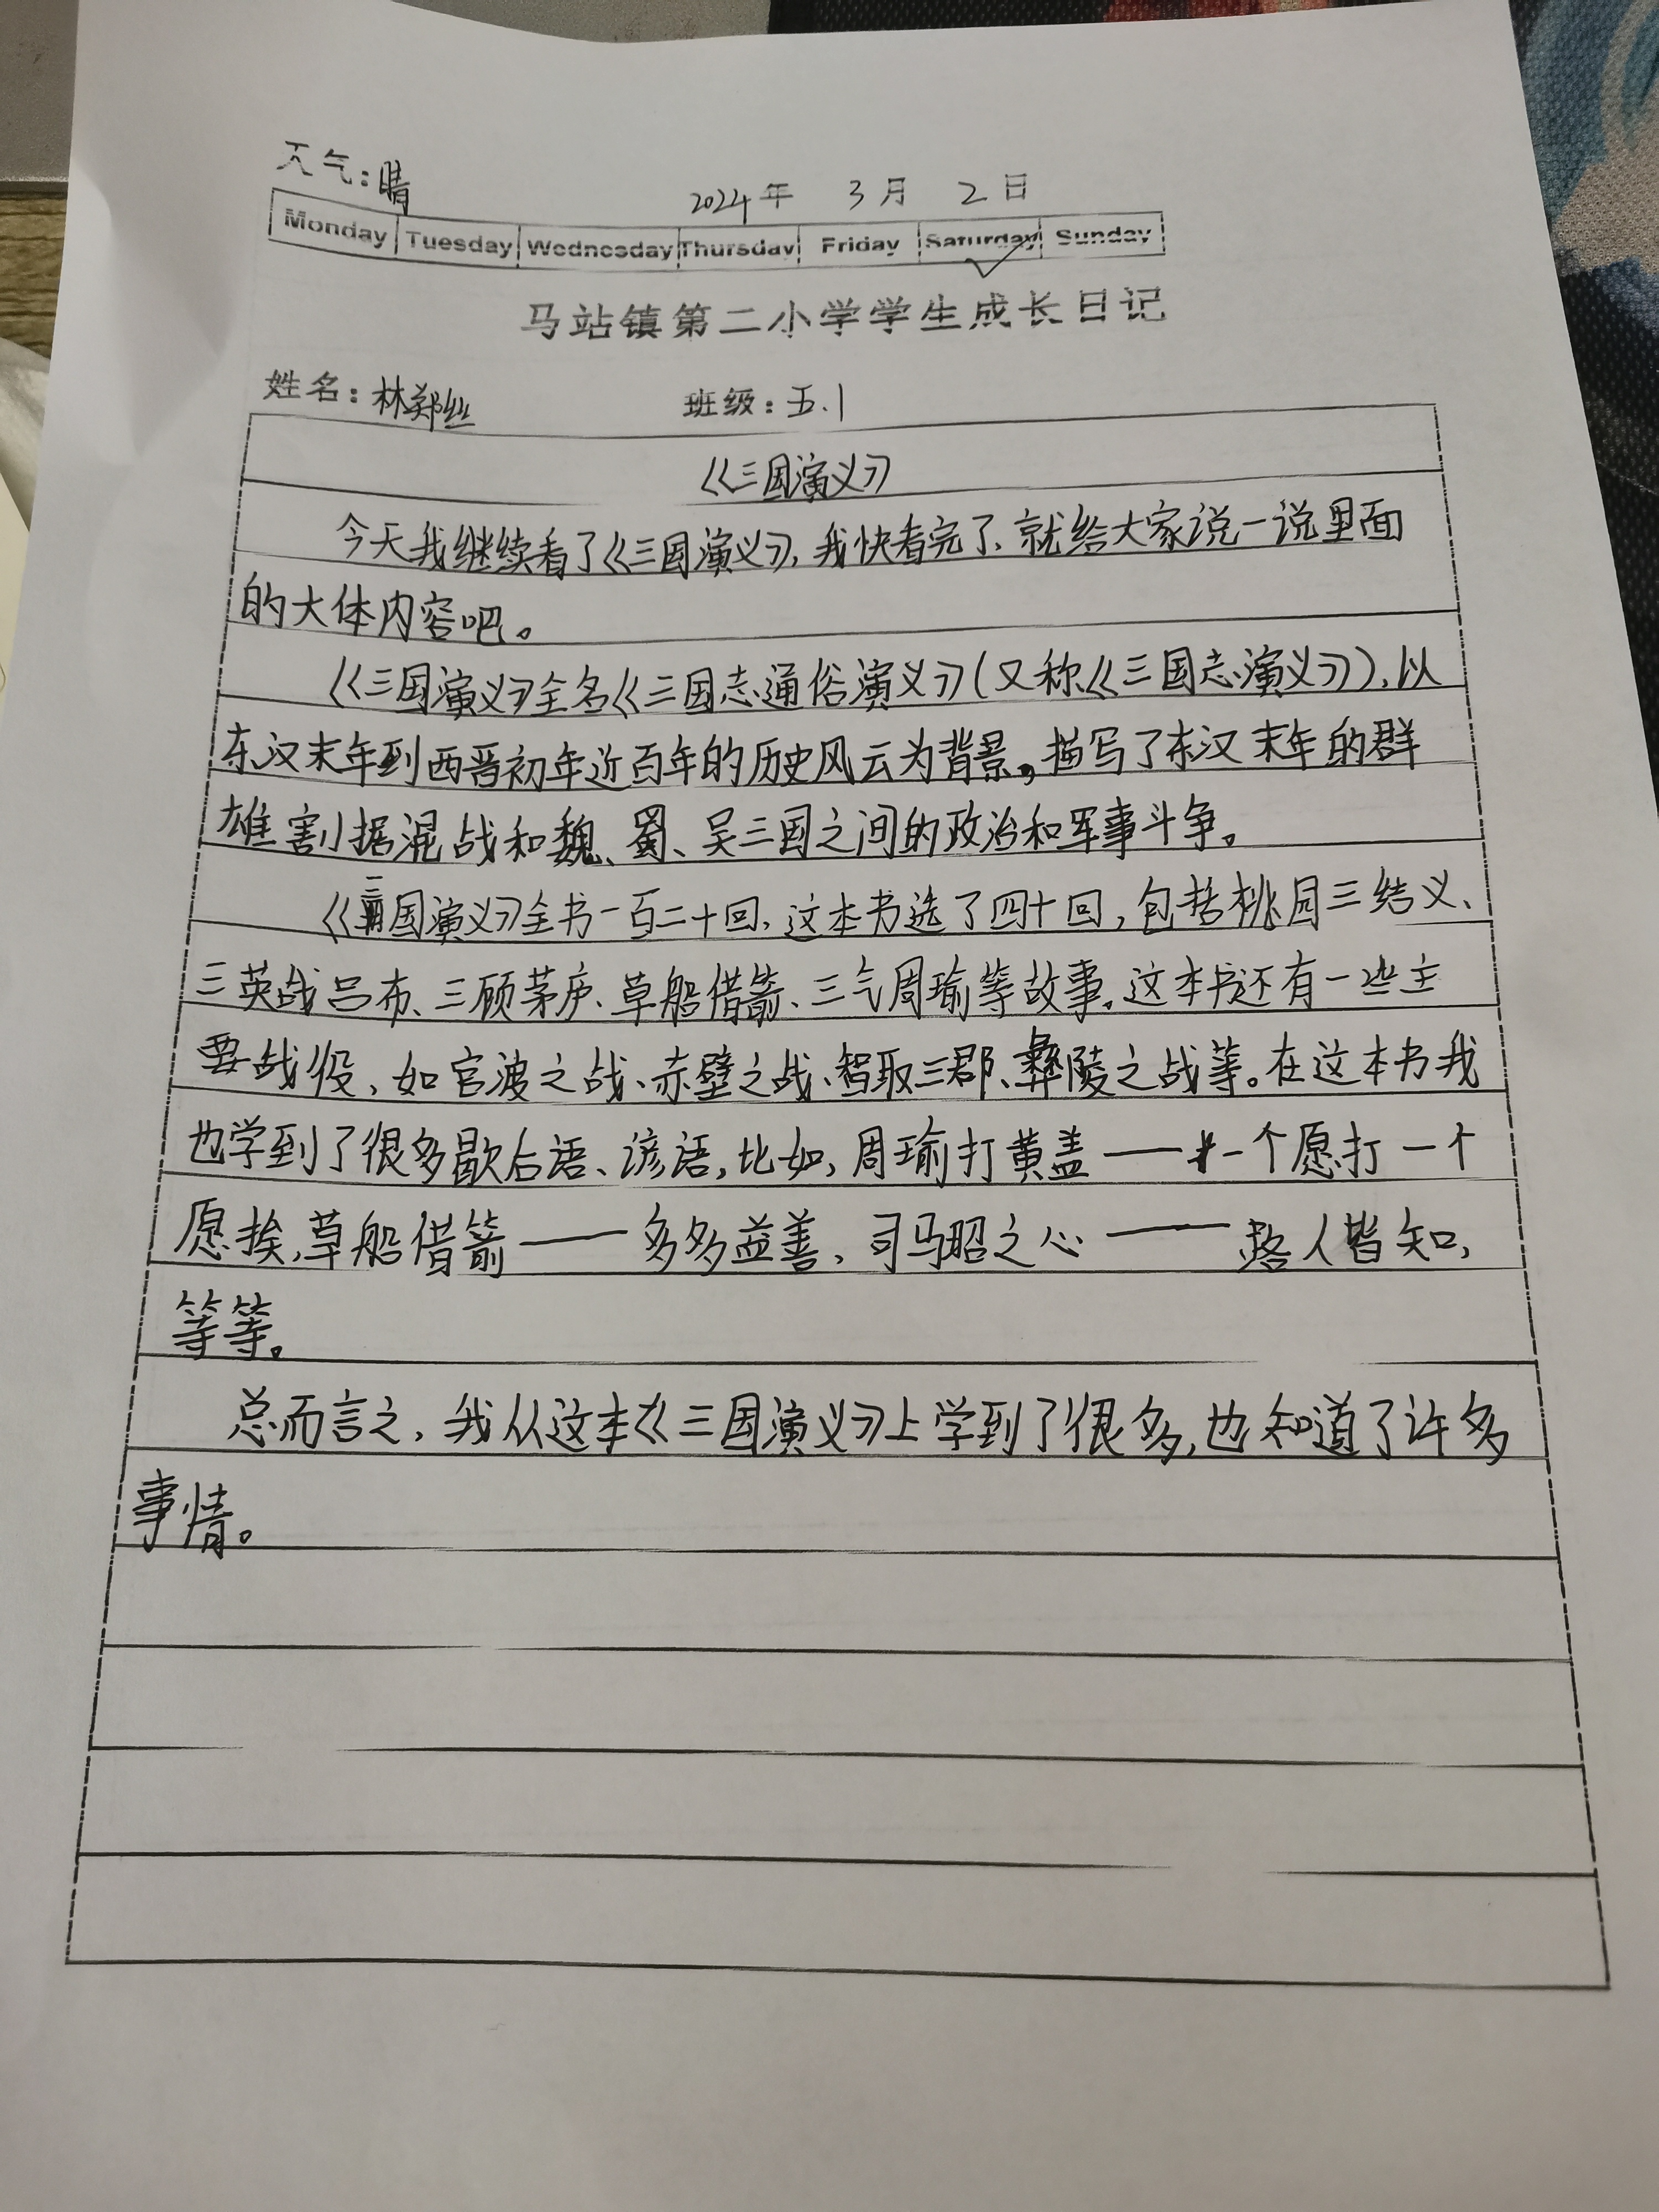 天气:晴
2024年 3月 2日
Monday Tuesday Wednesday Thursday Friday Saturday Sunday
马站镇第二小学学生成长日记
姓名:林郑丝 班级:五.1
《三国演义》
今天我继续看了《三国演义》,我快看完了,就给大家说一说里面
的大体内容吧。
《三国演义》全名《三国志通俗演义》(又称《三国志演义》),以
东汉末年到西晋初年近百年的历史风云为背景,描写了东汉末年的群
雄割据混战和魏、蜀、吴三国之间的政治和军事斗争。
《三国演义》全书一百二十回,这本书选了四十回,包括桃园三结义、
三英战吕布、三顾茅庐、草船借箭、三气周瑜等故事。这本书还有一些主
要战役,如官渡之战、赤壁之战、智取三郡、彝陵之战等。在这本书我
也学到了很多歇后语、谚语,比如,周瑜打黄盖——一个愿打一个
愿挨,草船借箭——多多益善,司马昭之心——路人皆知,
等等。
总而言之,我从这本《三国演义》上学到了很多,也知道了许多
事情。